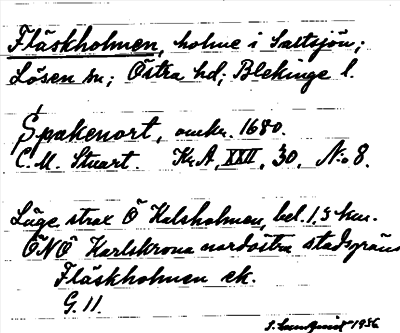 Fläskholmen, holme i Saltsjön;
Lösen sn; Östra hd; Blekinge l.
Spakenort, omkr. 1680.
C. M. Stuart. Kr.A. XXII, 30, No 8.
Läge strax Ö Kelsholmen, bel. 1,3 km.
ÖNÖ Karlskrona nordöstra stadsgräns
Fläskholmen ek.
G. 11.
1956